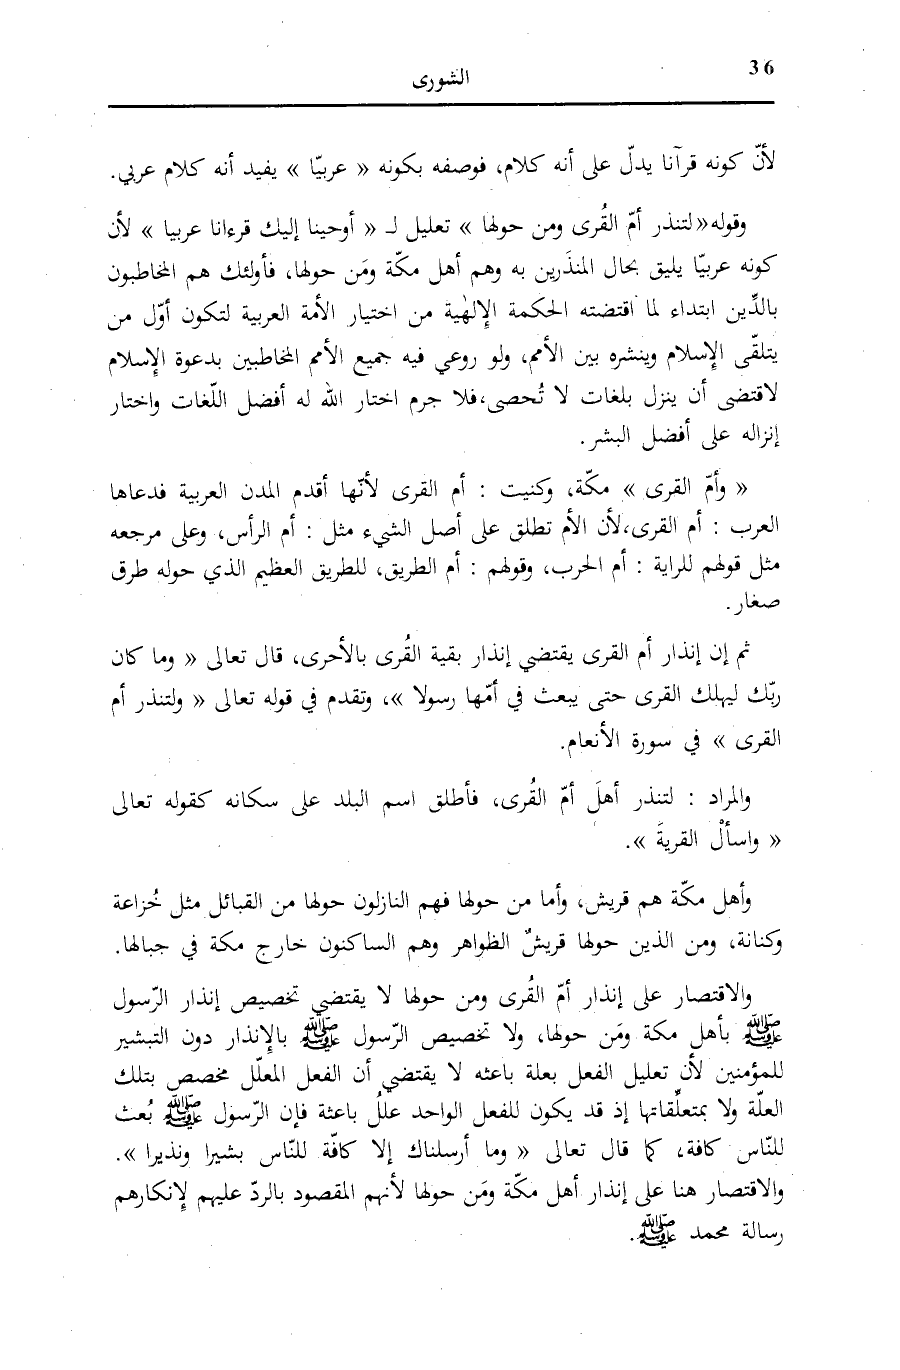 36
الشورى
لأنّ كونه قرآنا يدلّ على أنه كلام، فوصفه بكونه « عربيّا » يفيد أنه كلام عربي.
وقوله«لتنذر أمّ القُرى ومن حولها » تعليل لـ « أوحينا إليك قرءانا عربيا » لأن
كونه عربيّا يليق بحال المنذَرين به وهم أهل مكّة ومَن حولها، فأولئك هم المخاطبون
بالدِّين ابتداء لما اقتضته الحكمة الإلهٰية من اختيار الأمة العربية لتكون أوّل من
يتلقّى الإسلام وينشره بين الأمم، ولو روعي فيه جميع الأمم المخاطبين بدعوة الإسلام
لاقتضى أن ينزل بلغات لا تُحصى،فلا جرم اختار الله له أفضل اللّغات واختار
إنزاله على أفضل البشر.
« وأمّ القرى » مكّة، وكنيت : أم القرى لأنّها أقدم المدن العربية فدعاها
العرب : أم القرى،لأن الأم تطلق على أصل الشيء مثل : أم الرأس، وعلى مرجعه
مثل قولهم للراية : أم الحرب، وقولهم : أم الطريق، للطريق العظيم الذي حوله طرق
صغار.
ثم إن إنذار أم القرى يقتضي إنذار بقية القُرى بالأحرى، قال تعالى « وما كان
ربّك ليهلك القرى حتى يبعث في أمّها رسولا »، وتقدم في قوله تعالى « ولتنذر أم
القرى » في سورة الأنعام.
والمراد : لتنذر أهلَ أمّ القُرى، فأطلق اسم البلد على سكانه كقوله تعالى
« واسألْ القريةَ ».
وأهل مكّة هم قريش، وأما من حولها فهم النازلون حولها من القبائل مثل خُزاعة
وكنانة، ومن الذين حولها قريشٌ الظواهر وهم الساكنون خارج مكة في جبالها.
والاقتصار على إنذار أمّ القُرى ومن حولها لا يقتضي تخصيص إنذار الرّسول
ﷺ بأهل مكة ومَن حولها، ولا تخصيص الرّسول ﷺ بالإنذار دون التبشير
للمؤمنين لأن تعليل الفعل بعلة باعثه لا يقتضي أن الفعل المعلّل مخصص بتلك
العلّة ولا بمتعلِّقاتها إذ قد يكون للفعل الواحد عللُ باعثة فإن الرّسول ﷺ بُعث
للنّاس كافة، كما قال تعالى « وما أرسلناك إلا كافّة للنّاس بشيرا ونذيرا ».
والاقتصار هنا على إنذار أهل مكّة ومَن حولها لأنهم المقصود بالردّ عليهم لإنكارهم
رسالة محمد ﷺ.